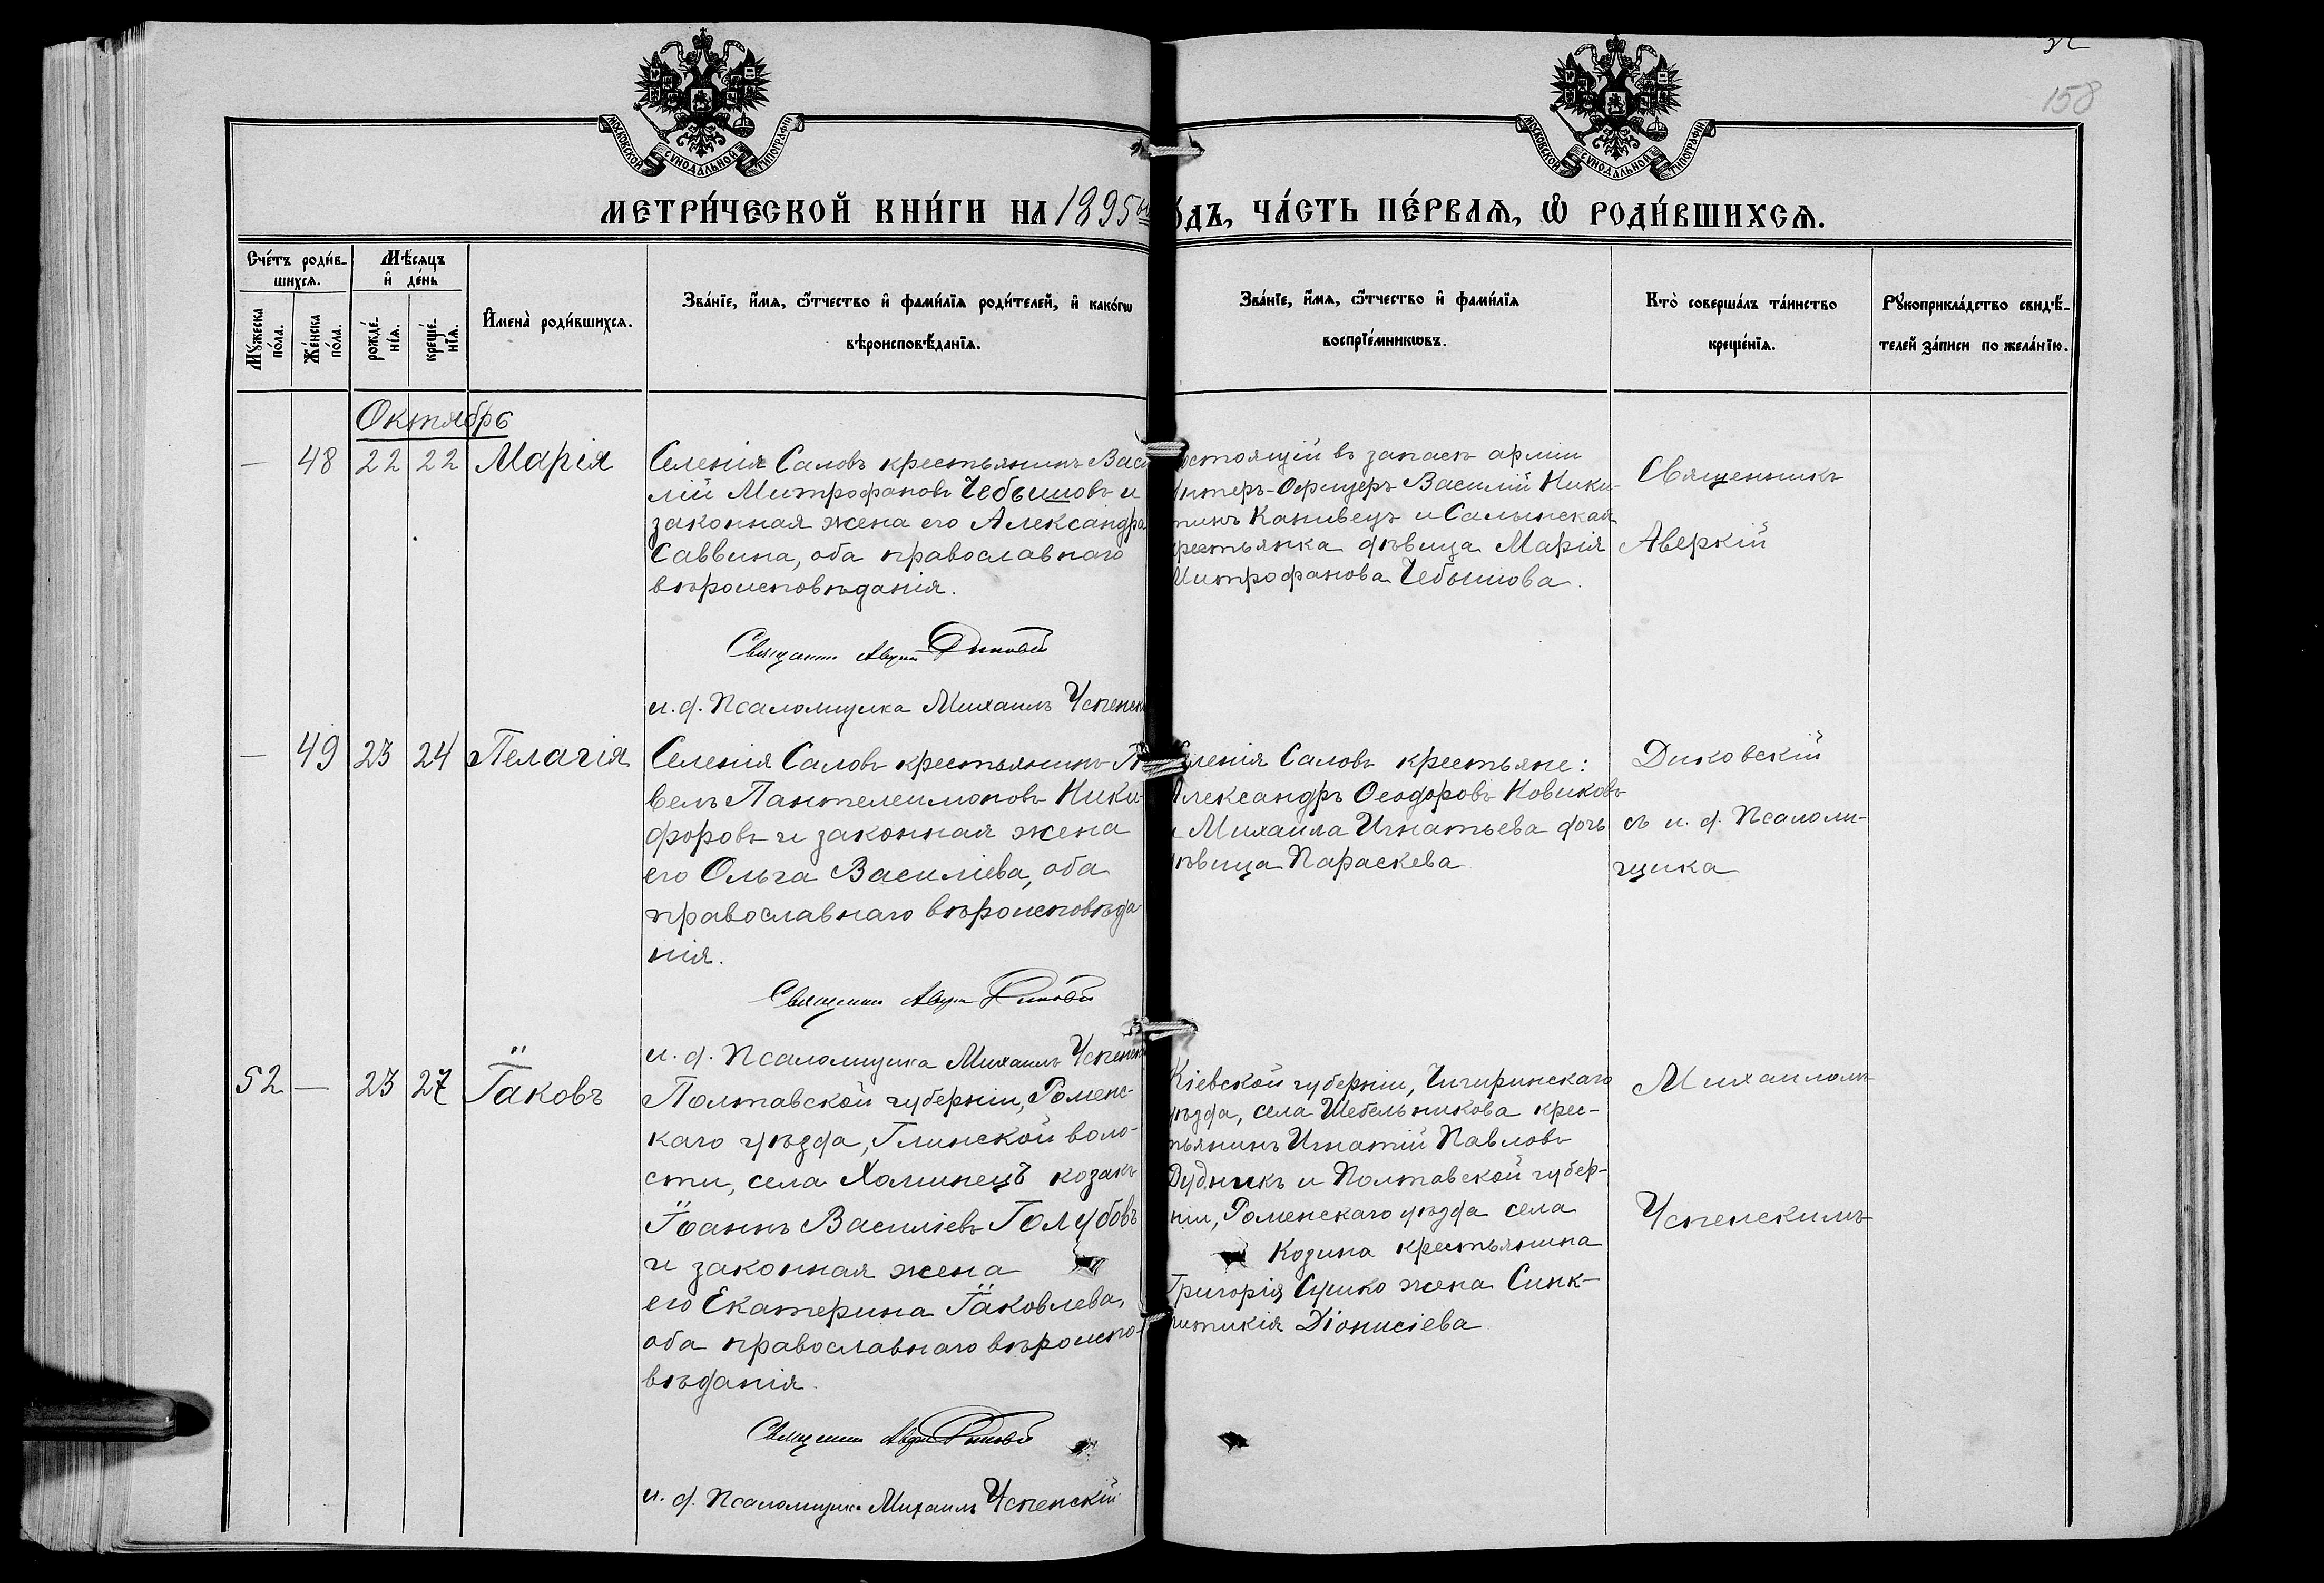 158
МОСКОВСКОЙ СѴНОДАЛЬНОЙ ТИПОГРАФІИ
МОСКОВСКОЙ СѴНОДАЛЬНОЙ ТИПОГРАФІИ
МЕТРИ́ЧЕСКОЙ КНИ́ГИ НА 1895
ѺДЪ, ЧА́СТЬ ПЕ́РВАѦ, Ѡ҆ РОДИ́ВШИХСѦ.
Сче́тъ роди́в-
шихсѧ.
Мѣ́сѧцъ
и҆ де́нь
Мꙋ́жеска по́ла.
Же́нска по́ла.
рожде́-
нїѧ.
креще́-
нїѧ.
И҆мена̀ роди́вшихсѧ.
Зва́нїе, и҆́мѧ, ѻ҆́тчество и҆ фами́лїѧ роди́телей, и҆ како́гѡ
вѣроисповѣ́данїѧ.
Зва́нїе, и҆́мѧ, ѻ҆́тчество и҆ фами́лїѧ
воспрїе́мникѡвъ.
Кто̀ соверша́лъ та́инство
креще́нїѧ.
Рꙋкоприкла́дство свидѣ́-
телей за́писи по жела́нїю.
Октябрь
— 48 22 22 Марія
Селенія Саловъ крестьянинъ Васи
лій Митрофановъ Чебышовъ и
законная жена его Александра
Саввина, оба православнаго
вѣроисповѣданія.
Священникъ Аверкій Диковскій
и. д. Псаломщика Михаилъ Успенск
остоящій въ запасѣ арміи
Унтеръ-Офицеръ Василій Ники-
тинъ Канивецъ и Салынская
крестьянка дѣвица Марія
Митрофанова Чебышова.
Священникъ
Аверкій
— 49 23 24 Пелагія
Селенія Саловъ крестьянинъ Па
велъ Пантелеимоновъ Ники-
форовъ и законная жена
его Ольга Василіева, оба
православнаго вѣроисповѣда-
нія.
Священникъ Аверкій Диковскій
и. д. Псаломщика Михаилъ Успенск
еленія Саловъ крестьяне:
Александръ Ѳеодоровъ Новиковъ
и Михаила Игнатьева дочь
дѣвица Параскева
Диковскій
съ и. д. Псалом-
щика
52 — 23 27 Іаковъ
Полтавской губерніи, Роменс-
каго уѣзда, Глинской воло-
сти, села Хоминецъ козакъ
Іоаннъ Василіевъ Голубовъ
и законная жена
его Екатерина Іаковлева,
оба православнаго вѣроиспо-
вѣданія.
Священникъ Аверкій Диковскій
и. д. Псаломщика Михаилъ Успенскій
Кіевской губерніи, Чигиринскаго
уѣзда, села Шебельникова крес-
тьянинъ Игнатій Павловъ
Дудникъ и Полтавской губер-
ніи, Роменскаго уѣзда села
Козина крестьянина
Григорія Сушко жена Синк-
литикія Діонисіева
Михаиломъ
Успенскимъ